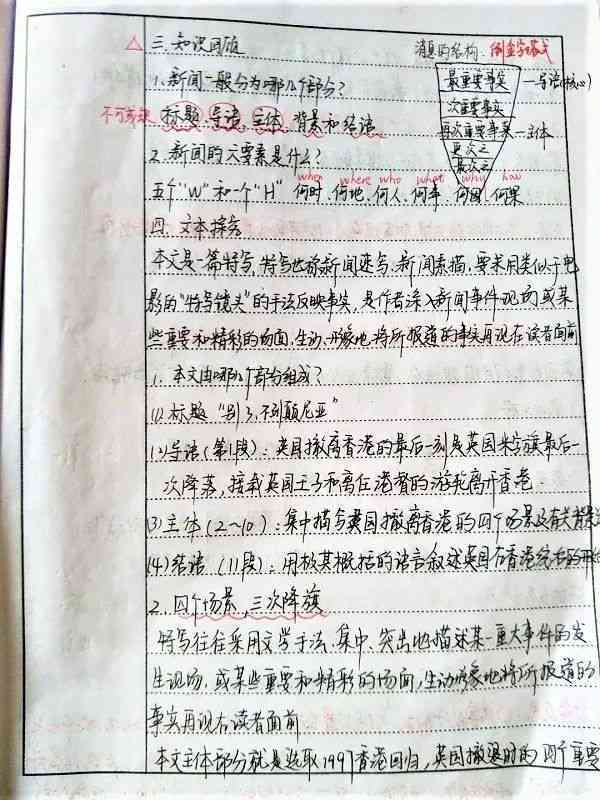 三. 知识回顾
消息的结构: 倒金字塔式
1. 新闻一般分为哪几个部分?
最重要事实 — 导语(核心)
次重要事实
不可或缺 标题、导语、主体、背景和结语
再次重要事实 — 主体
2. 新闻的六要素是什么?
更次之
最次之
when where who what why how
五个"W"和一个"H" 何时、何地、何人、何事、何因、何果
四. 文本探究
本文是一篇特写,特写也称新闻速写、新闻素描,要求用类似于电
影的"特写镜头"的手法反映事实,是作者深入新闻事件现场或某
些重要和精彩的场面,生动、形象地将所报道的事实再现在读者面前
1. 本文由哪几个部分组成?
(1) 标题 "别了,不列颠尼亚"
(2) 导语 (第1段): 英国撤离香港的最后一刻是英国米字旗最后一
次降落,接载英国王子和离任港督的游轮离开香港.
(3) 主体 (2~10): 集中描写英国撤离香港的四个场景及有关背景
(4) 结语 (11段): 用极其概括的语言叙述英国在香港统治的
2. 四个场景,三次降旗
特写往往采用文学手法,集中、突出地描述某一重大事件的发
生现场,或某些重要和精彩的场面,生动形象地将所报道的
事实再现在读者面前
本文主体部分就是选取1997香港回归,英国撤退时的四个重要